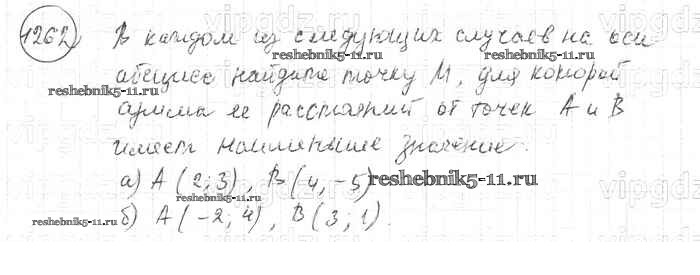 1262) В каждом из следующих случаев на оси
reshebnik5-11.ru reshebnik5-11.ru
абсцисс найдите точку М, для которой
reshebnik5-11.ru
сумма ее расстояний от точек А и В
reshebnik5-11.ru
имеет наименьшее значение.
а) А (2; 3), В (4, -5) reshebnik5-11.ru
б) А (-2; 4), В (3; 1).
reshebnik5-11.ru